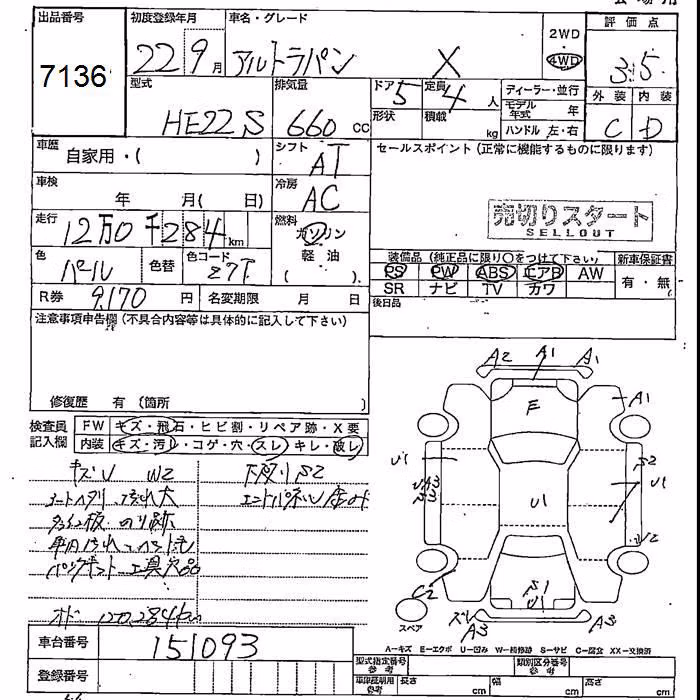 会場用
出品番号 初度登録年月 車名・グレード 2WD・4WD 評価点
7136 22年9月 アルトラパン X 3.5
型式 HE22S 排気量 660 cc ドア 5 定員 4 人 形状 積載 kg
ディーラー・並行 モデル年式 年 ハンドル 左・右 外装 C 内装 D
車歴 自家用・( ) シフト AT セールスポイント(正常に機能するものに限ります)
車検 年 月( 日) 冷房 AC
売切りスタート
SELLOUT
走行 12万0千284km 燃料 ガソリン 軽油 ( )
色 パール 色替 色コード Z7T
装備品(純正品に限り○をつけて下さい) 新車保証書
PS PW ABS エアB AW 有・無
SR ナビ TV カワ
R券 9,170 円 名変期限 月 日 後日品
注意事項申告欄(不具合内容等は具体的に記入して下さい)
修復歴 有(箇所 )
検査員記入欄 FW キズ・飛石・ヒビ割・リペア跡・X要
内装 キズ・汚レ・コゲ・穴・スレ・キレ・破レ
キズV W2 下廻りS2
汚れ大
のり跡
工具欠品
オド 120,284km
A2 A1 A1
E A1
U1 U1 S2 U1
A3
C2 S1 U1 U2
A3 A3
スペア
A-キズ E-エクボ U-凹み W-補修跡 S-サビ C-腐食 XX-交換済
車台番号 151093
登録番号
型式指定番号 参考 類別区分番号 参考
車庫証明用 参考 長さ cm 幅 cm 高さ cm